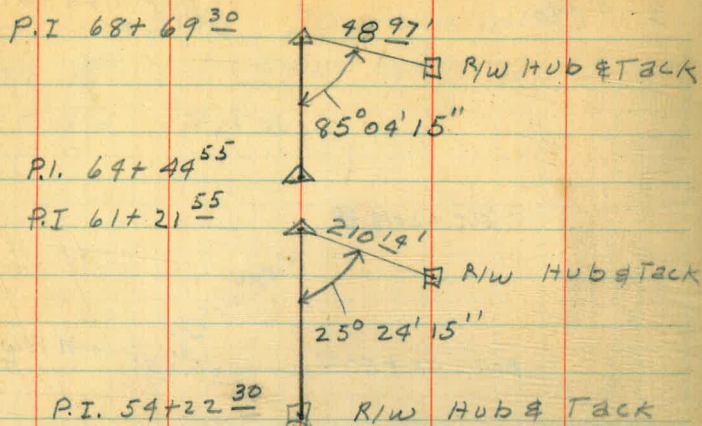 P.I 68+69 30 48 97'
R/W Hub & Tack
85° 04' 15"
P.I. 64+44 55
P.I 61+21 55 210 14'
R/W Hub & Tack
25° 24' 15"
P.I. 54+22 30 R/W Hub & Tack